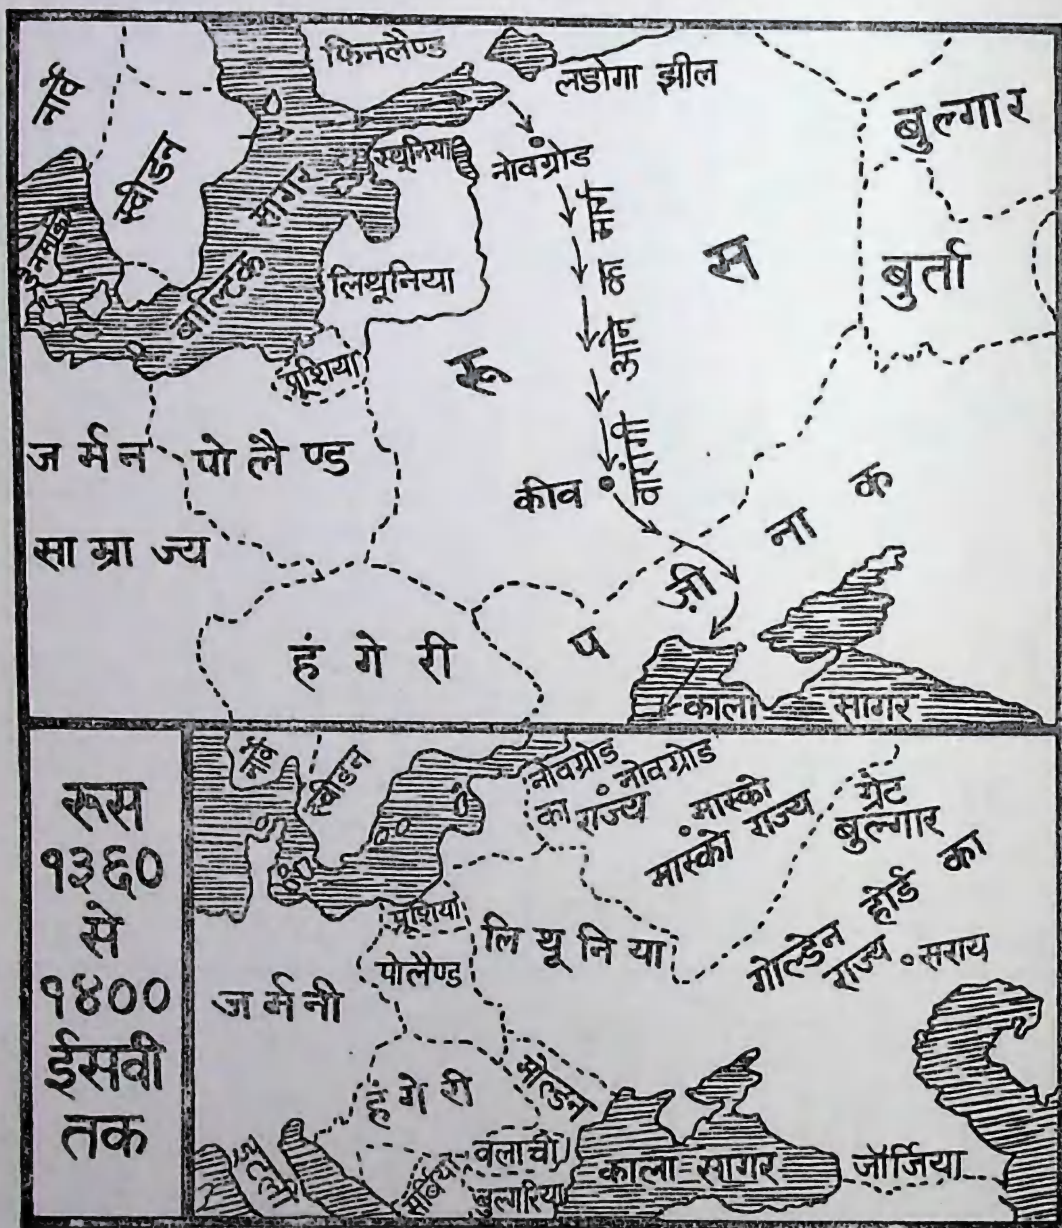 नार्वे
स्वीडन
फिनलैण्ड
लडोगा झील
बुल्गार
नोवग्रोड
स्यूनिया
बाल्टिक सागर
डेनमार्क
लिथूनिया
प्रूशिया
रूस
बुर्ता
वारांगी आने का मार्ग
जर्मन
साम्राज्य
पोलैण्ड
कीव
पज़ीनाक
हंगेरी
काला सागर
रूस
१३६०
से
१४००
ईसवी
तक
नार्वे
स्वीडन
नोवग्रोड
का राज्य
नोवग्रोड
मास्को
मास्को राज्य
ग्रेट
बुल्गार
गोल्डेन होर्ड का
राज्य
सराय
प्रूशिया
लिथूनिया
पोलैण्ड
जर्मनी
हंगेरी
मोल्डन
वलाची
सर्बिया
बुल्गारिया
इटली
काला सागर
जॉर्जिया